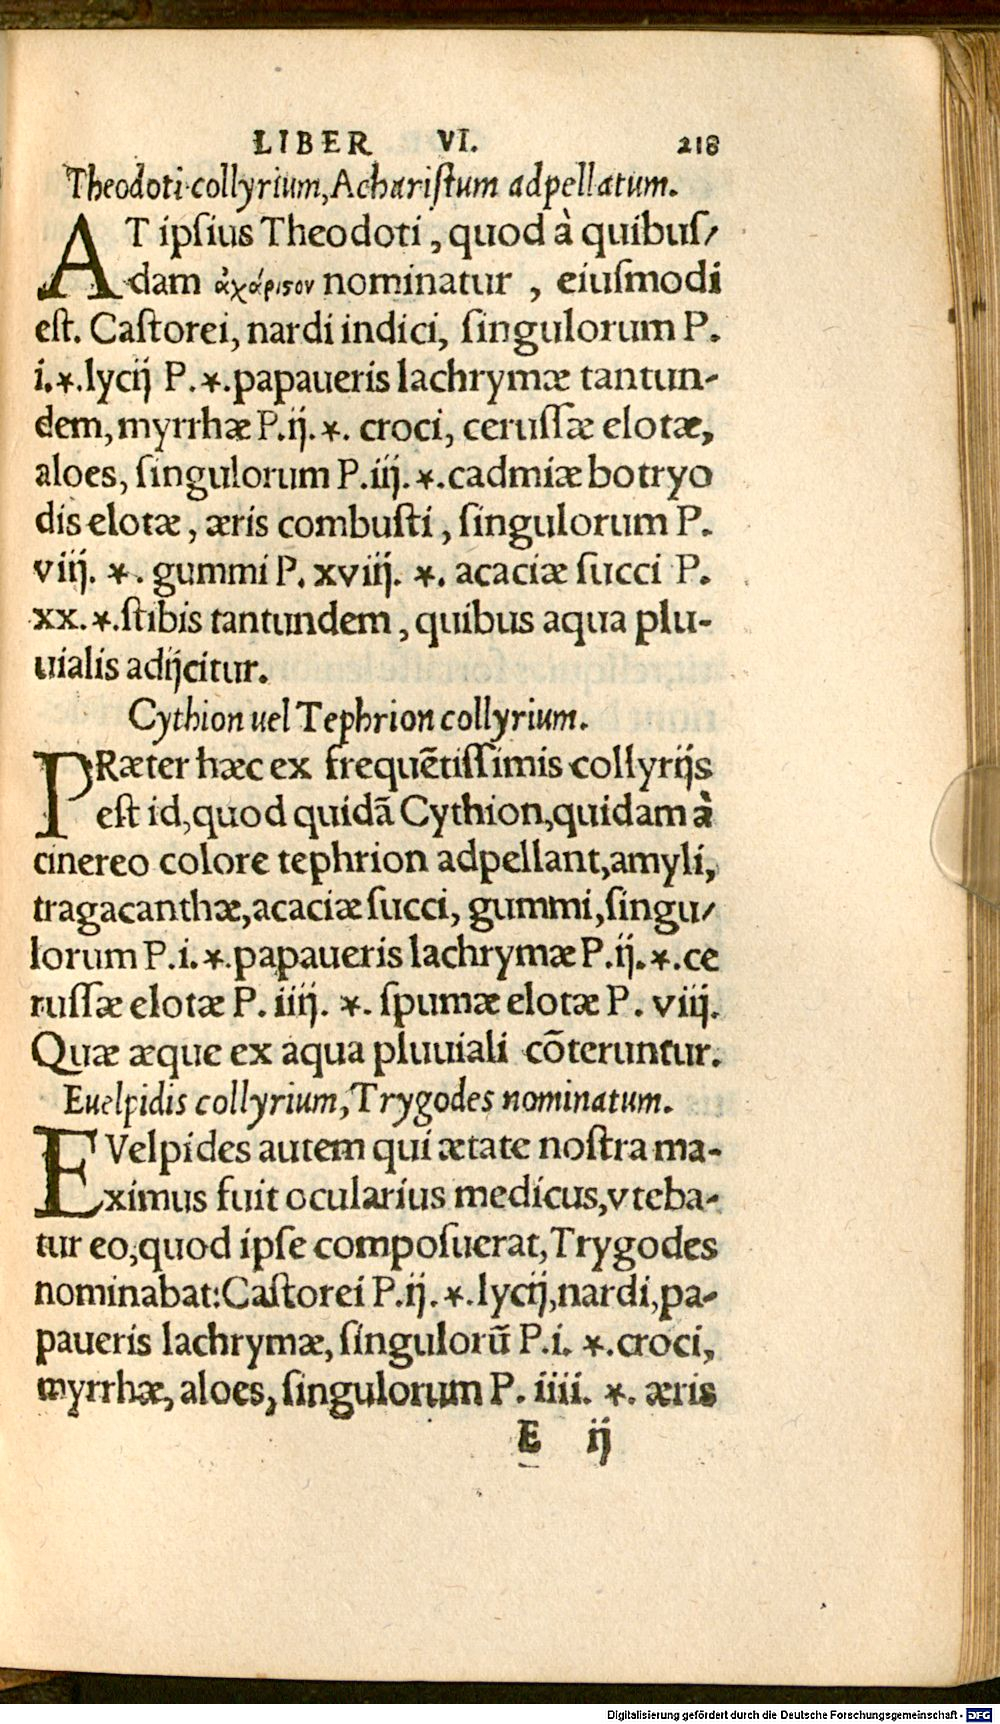 LIBER VI. 218
Theodoti collyrium, Acharistum adpellatum.
AT ipsius Theodoti, quod à quibus/
dam ἀχάριϛον nominatur, eiusmodi
est. Castorei, nardi indici, singulorum P.
i.*.lycij P.*.papaueris lachrymæ tantun-
dem, myrrhæ P.ij.*. croci, cerussæ elotæ,
aloes, singulorum P.iij.*.cadmiæ botryo
dis elotæ, æris combusti, singulorum P.
viij. *. gummi P. xviij. *. acaciæ succi P.
xx.*.stibis tantundem, quibus aqua plu-
uialis adijcitur.
Cythion uel Tephrion collyrium.
PRæter hæc ex frequẽtissimis collyrijs
est id, quod quidã Cythion, quidam à
cinereo colore tephrion adpellant, amyli,
tragacanthæ, acaciæ succi, gummi, singu/
lorum P.i.*.papaueris lachrymæ P.ij.*.ce
russæ elotæ P. iiij. *. spumæ elotæ P. viij.
Quæ æque ex aqua pluuiali cõteruntur.
Euelpidis collyrium, Trygodes nominatum.
EVelpides autem qui ætate nostra ma-
ximus fuit ocularius medicus, vteba-
tur eo, quod ipse composuerat, Trygodes
nominabat: Castorei P.ij.*.lycij, nardi, pa-
paueris lachrymæ, singulorũ P.i. *.croci,
myrrhæ, aloes, singulorum P. iiii. *. æris
E ij
Digitalisierung gefördert durch die Deutsche Forschungsgemeinschaft - DFG